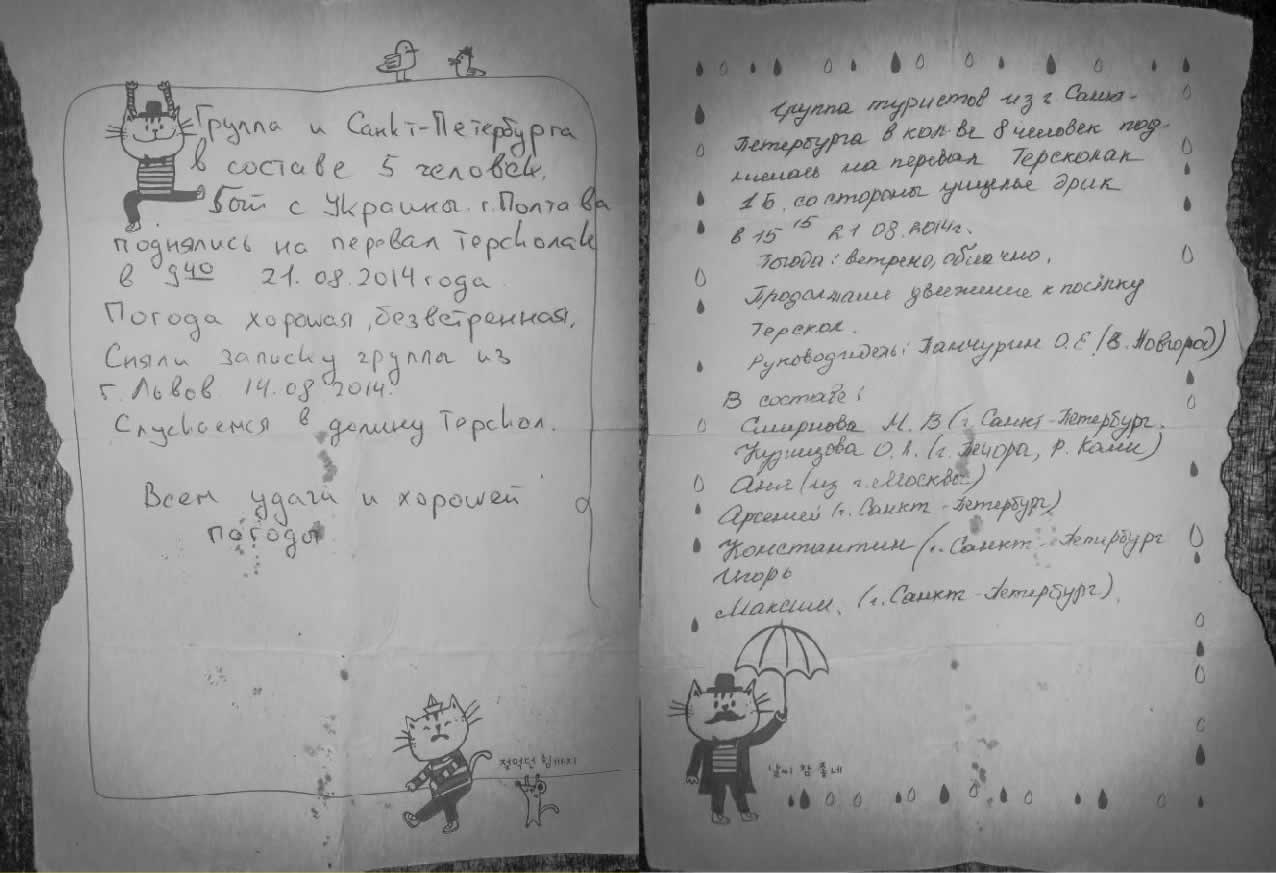 Группа и Санкт-Петербурга
в составе 5 человек.
5 от с Украины. г. Полтава
поднялись на перевал Терсколак
в 9 40 21.08.2014 года.
Погода хорошая, безветренная.
Сняли записку группы из
г. Львов 14.08.2014.
Спускаемся в долину Терскол.
Всем удачи и хорошей
погоды
젖먹던 힘까지
Группа туристов из г. Санкт-
Петербурга в кол-ве 8 человек под-
нялась на перевал Терсколак
1Б, со стороны ущелье Ирик
в 15 15 21 08.2014г.
Погода: ветрено, облачно.
Продолжаем движение к посёлку
Терскол.
Руководитель: Панчурин О.Е (В. Новгород)
В составе:
Смирнова М. В (г. Санкт-Петербург.
Кузнецова О.А. (г. Печора, р. Коми)
Аня (из г. Москвы)
Арсений (г. Санкт-Петербург)
Константин (г. Санкт-Петербург
Игорь
Максим. (г. Санкт-Петербург).
날씨 참 좋네